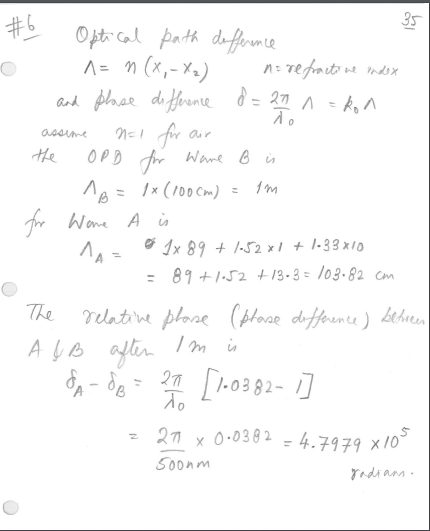 35
#6 Optical path difference
Λ = n (x₁ - x₂) n = refractive index
and phase difference δ = 2π/λ₀ Λ = k₀ Λ
assume n=1 for air
the OPD for Wave B is
Λ_B = 1x (100 cm) = 1m
for Wave A is
Λ_A = 1x 89 + 1.52 x1 + 1.33 x10
= 89 + 1.52 + 13.3 = 103.82 cm
The relative phase (phase difference) between
A & B after 1m is
δ_A - δ_B = 2π/λ₀ [1.0382 - 1]
= 2π/500nm x 0.0382 = 4.7979 x10⁵
radians.